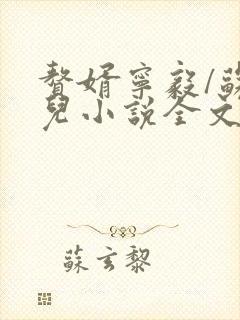 贅婿寧毅/蘇
兒小說全文
蘇玄黎